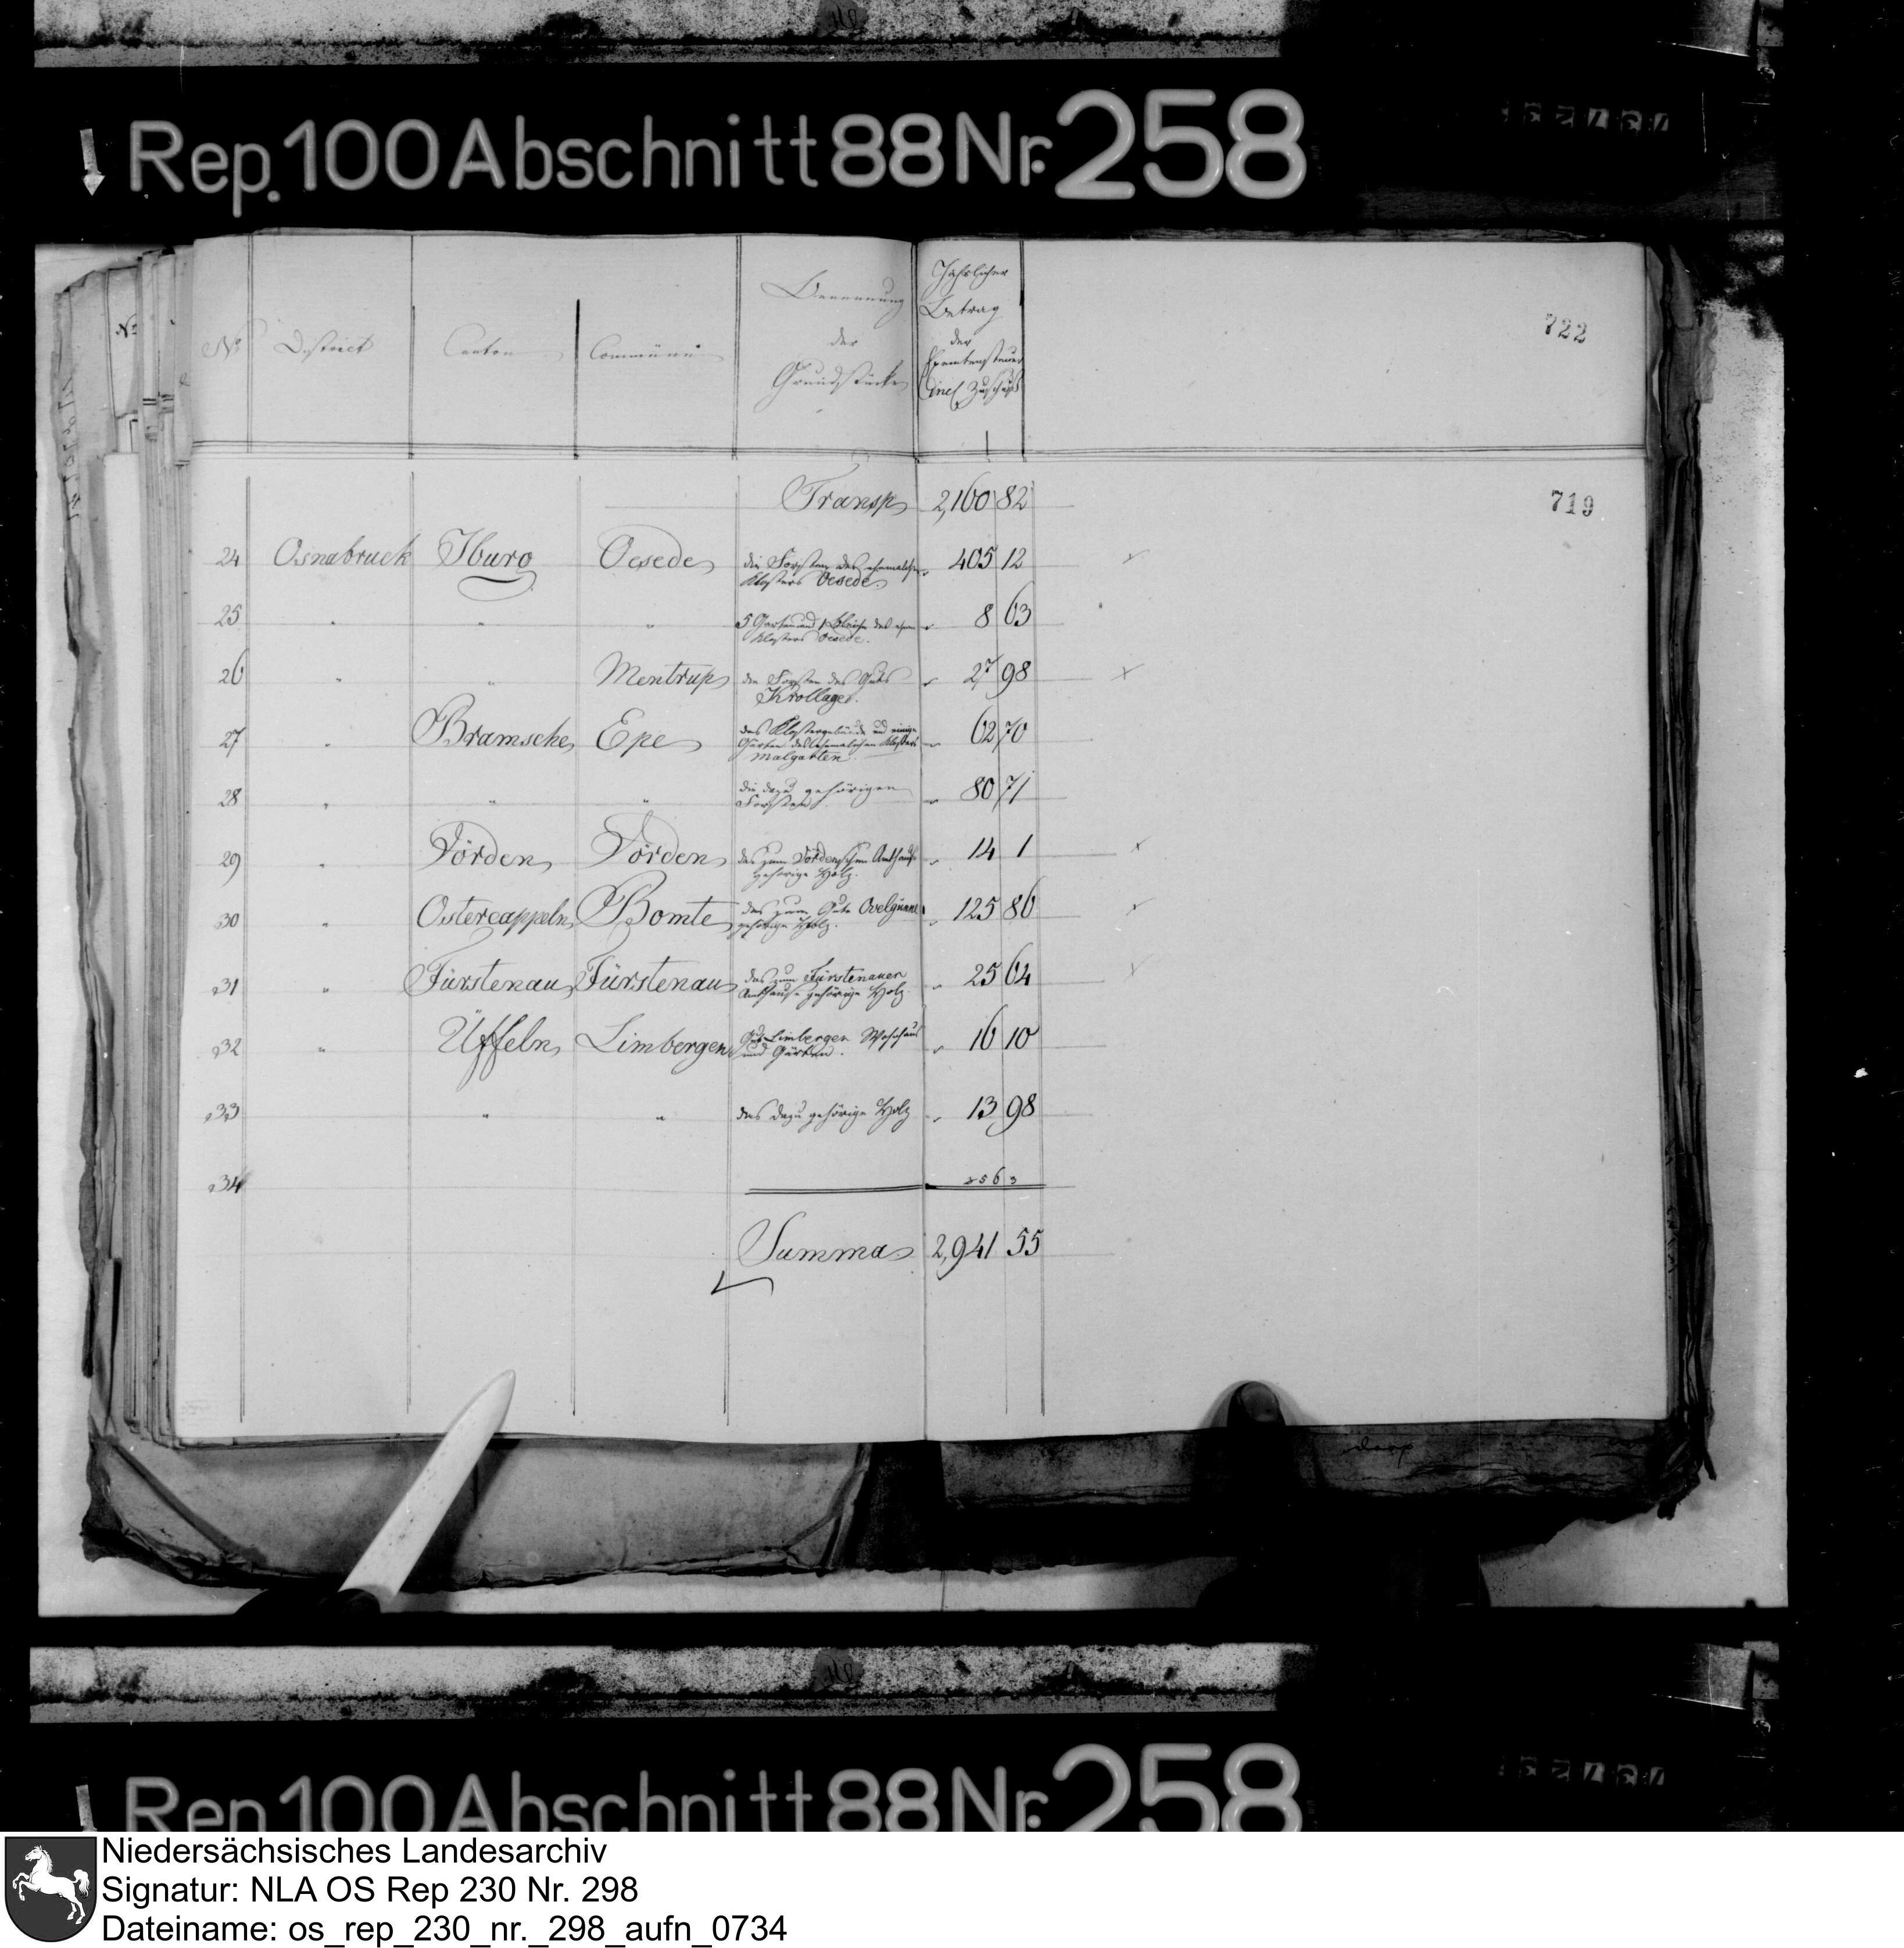 Rep. 100 Abschnitt 88 Nr. 258
722
No District Canton Commüne Benennung der Grundstücke Jährlicher Betrag der Exemtensteuer incl Zuschuß
719
Transp 2,160 82
24 Osnabruck Iburg Oesede die Forsten des ehemaligen 405 12
Klosters Oesede.
25 " " " 5 Garten und 1 Bleiche des ehem 8 63
Klosters Oesede.
26 " " Mentrup die Forsten des Guts 27 98
Krollage.
27 " Bramsche Epe das Klostergebäude und einige 62 70
Gärten des ehemaligen Klosters
Malgarten.
28 " " " die dazu gehörigen 80 71
Forsten
29 " Vörden Vörden das zum Vördenschen Amthause 14 1
gehörige Holz.
30 " Ostercappeln Bomte das zum Gute Ovelgünne 125 86
gehörige Holz.
31 " Fürstenau Fürstenau das zum Fürstenauer 25 64
Amthause gehörige Holz
32 " Üffeln Limbergen Gut Limbergen Wohnhaus 16 10
und Gärten.
33 " " das dazu gehörige Holz 13 98
34 256 3
Summa 2,941 55
dorp
Rep. 100 Abschnitt 88 Nr. 258
Niedersächsisches Landesarchiv
Signatur: NLA OS Rep 230 Nr. 298
Dateiname: os_rep_230_nr._298_aufn_0734